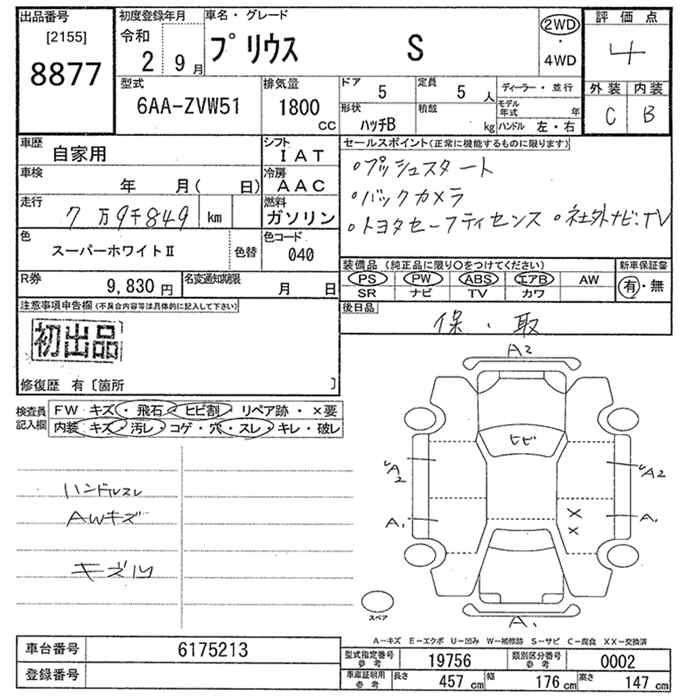 出品番号
[2155]
8877
初度登録年月
令和
2 9月
車名・グレード
プリウス S
2WD
・
4WD
評価点
4
外装 内装
C B
型式
6AA-ZVW51
排気量
1800
CC
ドア
5
定員
5 人
形状
ハッチB
積載
kg
ディーラー・並行
モデル年式 年
ハンドル 左・右
車歴
自家用
シフト
IAT
車検
年 月( 日)
冷房
AAC
走行
7万9千849 km
燃料
ガソリン
色
スーパーホワイトⅡ
色替
色コード
040
R券
9,830 円
名変通知期限
月 日
セールスポイント(正常に機能するものに限ります)
・プッシュスタート
・バックカメラ
・トヨタセーフティセンス ・社外ナビ・TV
装備品 (純正品に限り○をつけてください)
PS PW ABS エアB AW
SR ナビ TV カワ
新車保証書
有・無
後日品
保・取
注意事項申告欄(不具合内容等は具体的に記入して下さい)
初出品
修復歴 有〔箇所 〕
検査員
記入欄
FW キズ・飛石・ヒビ割・リペア跡・×要
内装 キズ・汚レ・コゲ・穴・スレ・キレ・破レ
ハンドルスレ
AWキズ
A2
ヒビ
A2
A2
A1
A1
X
X
A1
スペア
A−キズ E−エクボ U−凹み W−補修跡 S−サビ C−腐食 XX−交換済
車台番号
6175213
登録番号
型式指定番号
参考
19756
類別区分番号
参考
0002
車庫証明用
参考
長さ 457 cm
幅 176 cm
高さ 147 cm